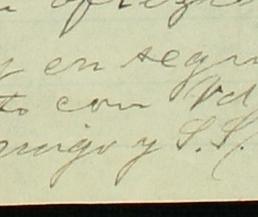 ofre
y en segu
to con Vd
amigo y S.S.